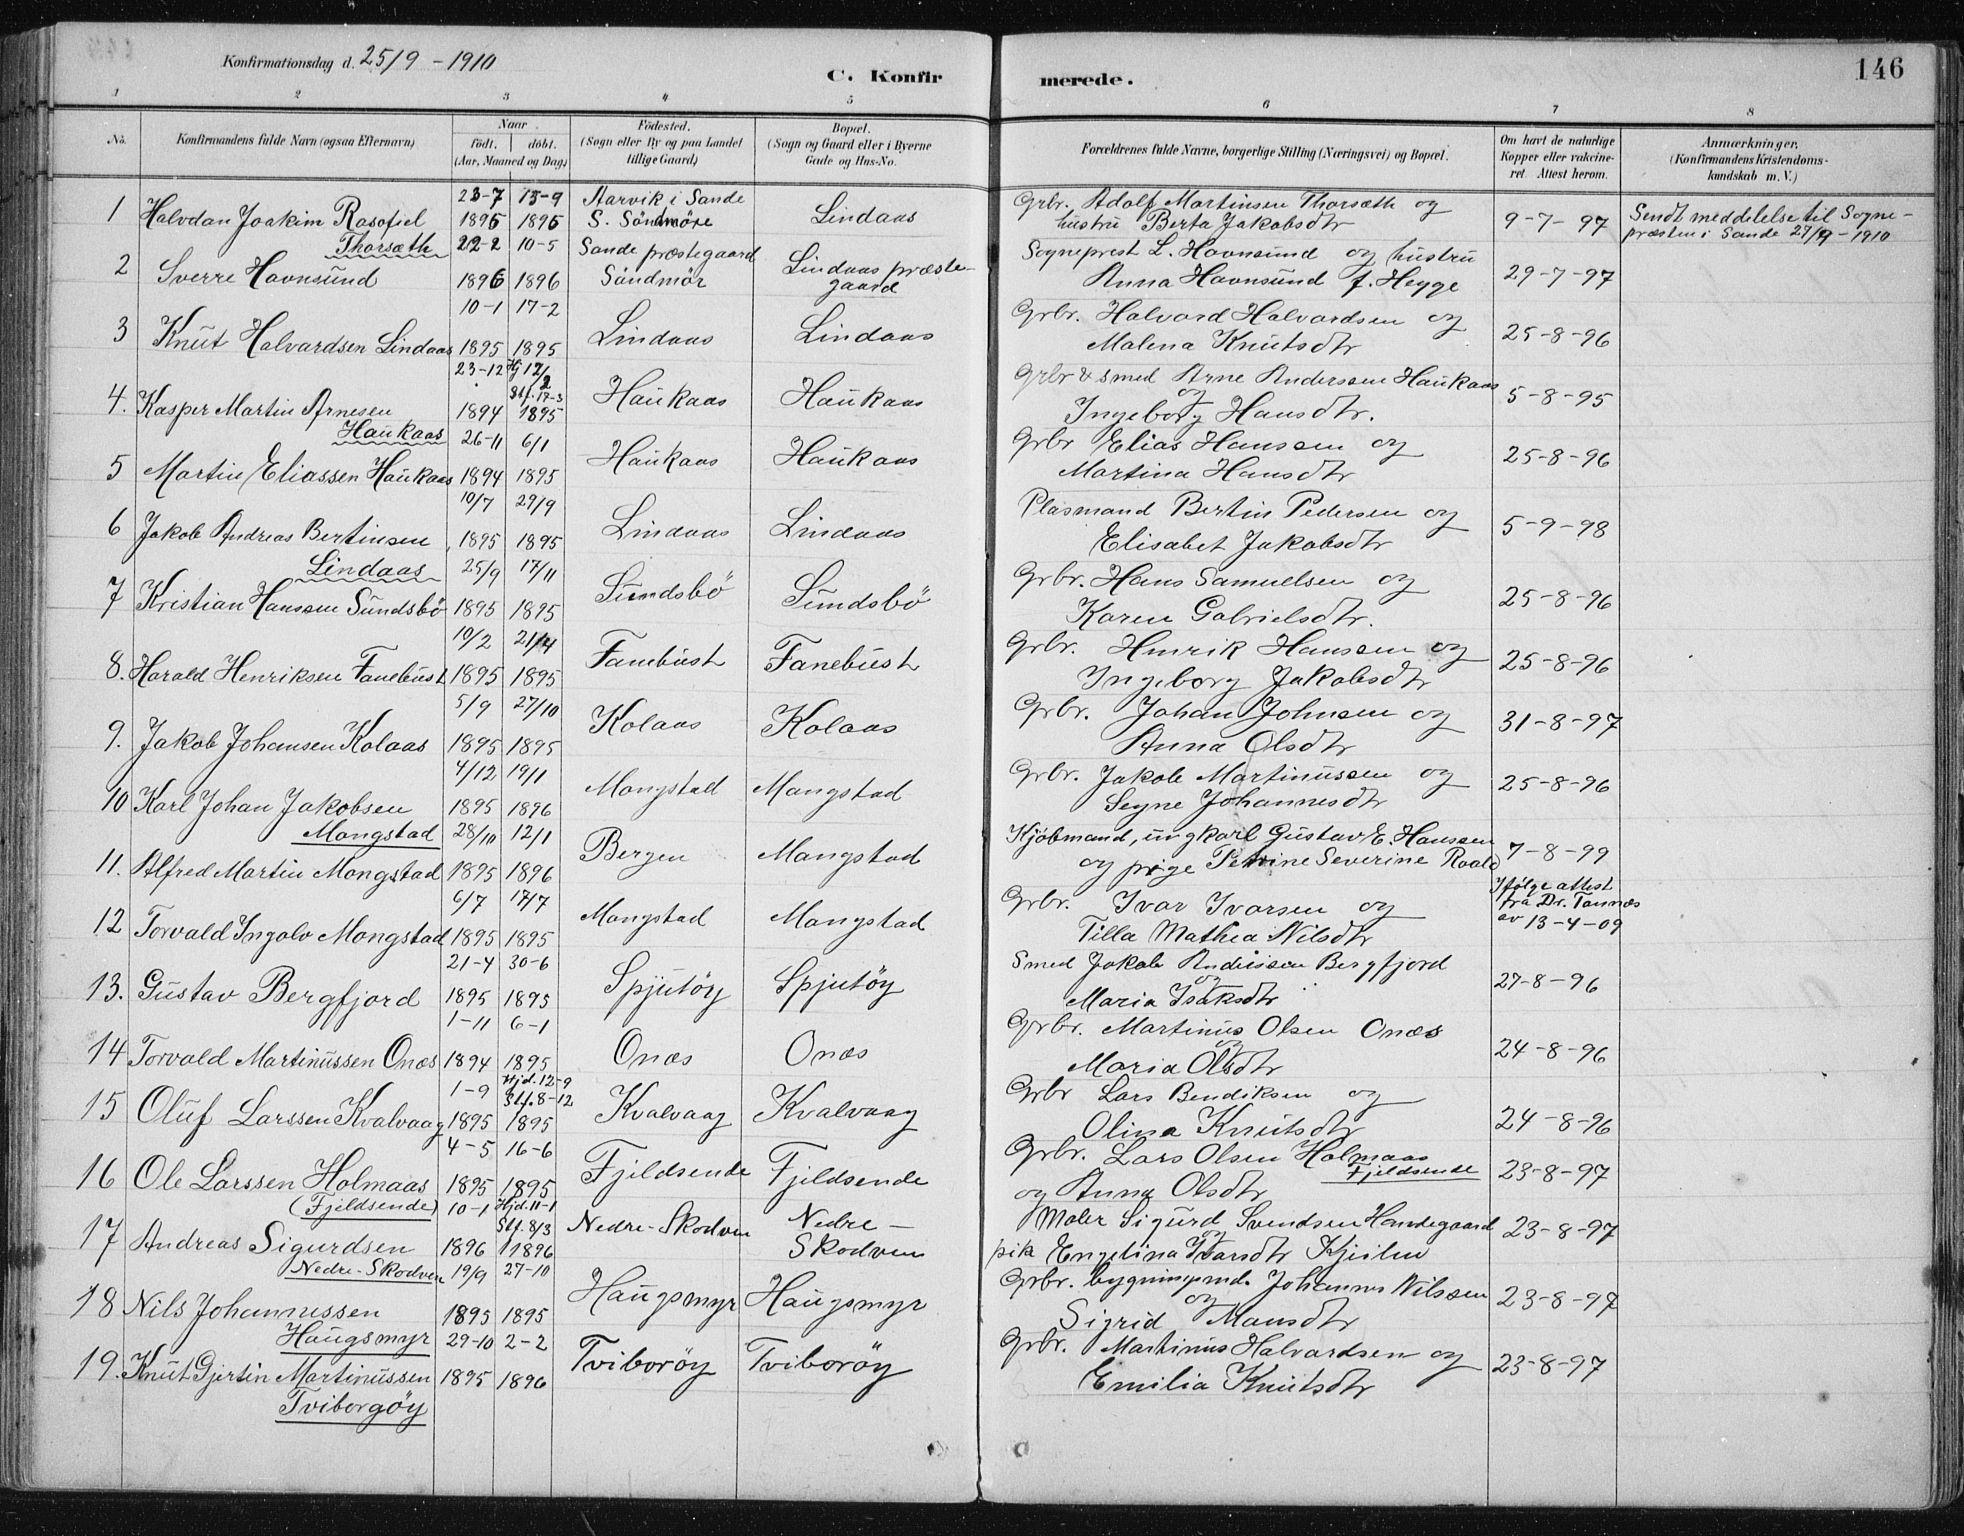 Konfirmationsdag d. 25/9 - 1910
C. Konfirmerede.
146
1 2 3 4 5 6 7 8
No.
Konfirmandens fulde Navn (ogsaa Efternavn)
Naar
födt. döbt.
(Aar, Maaned og Dag)
Födested.
(Sogn eller By og paa Landet
tillige Gaard)
Bopæl.
(Sogn og Gaard eller i Byerne
Gade og Hus-No.
Forældrenes fulde Navne, borgerlige Stilling (Næringsvei) og Bopæl.
Om havt de naturlige
Kopper eller vakcine-
ret. Attest herom.
Anmærkninger.
(Konfirmandens Kristendoms-
kundskab m. V.)
1 Halvdan Joakim Rasofiel Thorsæth 23-7 1896 13-9 1896 Aarvik i Sande S. Söndmöre Lindaas
Grbr. Adolf Martinsen Thorsæth og
hustru Berta Jakobsdtr 9-7-97
Sendt meddelelse til Sogne-
præsten i Sande 27/9-1910
2 Sverre Havnsund 22-2 1896 10-5 1896 Sande præstegaard Söndmör Lindaas præste-gaard
Sogneprest L. Havnsund og hustru
Anna Havnsund f. Heyge 29-7-97
3 Knut Halvardsen Lindaas 10-1 1895 17-2 1895 Lindaas Lindaas
Grbr. Halvard Halvardsen og
Malena Knutsdtr 25-8-96
4. Kasper Martin Arnesen Haukaas 23-12 1894 Hj 12/2 Stf. 17-3 1895 Haukaas Haukaas
Grbr & smed Arne Anderssen Haukaas
og
Ingeborg Hansdtr. 5-8-95
5 Martin Eliassen Haukaas 26-11 1894 6/1 1895 Haukaas Haukaas
Grbr Elias Hanssen og
Martina Hansdtr 25-8-96
6 Jakob Andreas Bertinsen Lindaas 10/7 1895 29/9 1895 Lindaas Lindaas
Plasmand Bertin Pedersen og
Elisabet Jakobsdtr 5-9-98
7 Kristian Hanssen Sundsbö 25/9 1895 17/11 1895 Sundsbö Sundsbö
Grbr. Hans Samuelsen og
Karen Gabrielsdtr. 25-8-96
8. Harald Henriksen Fanebust 19/2 1895 21/4 1895 Fanebust Fanebust
Grbr. Henrik Hanssen og
Ingeborg Jakobsdtr 25-8-96
9. Jakob Johansen Kolaas 5/9 1895 27/10 1895 Kolaas Kolaas
Grbr. Johan Johnsen og
Anna Olsdtr 31-8-97
10 Karl Johan Jakobsen Mongstad 4/12 1895 19/1 1896 Mongstad Mangstad
Grbr. Jakob Martinussen og
Segne Johannesdtr 25-8-96
11. Alfred Martin Mongstad 28/10 1895 12/1 1896 Bergen Mangstad
Kjöbmand, ungkarl Gustav E. Hanssen
og pige Petrine Severine Roald 7-8-99
12 Torvald Ingolv Mongstad 6/7 1895 17/7 1895 Mangstad Mangstad
Grbr. Ivar Ivarsen og
Tilla Mathea Nilsdtr
Ifölge attest
fra Dr. Tannæs
av 13-4-09
13. Gustav Bergfjord 21-4 1895 30-6 1895 Spjutöy Spjutöy
Smed Jakob Andersen Bergfjord
og
Maria Isaksdtr 27-8-96
14 Torvald Martinussen Onæs 1-11 1894 6-1 1895 Onæs Onæs
Grbr. Martinus Olsen Onæs
og
Maria Olsdtr 24-8-96
15 Oluf Larssen Kvalvaag 1-9 1895 Hjd. 12-9 Stf. 8-12 1895 Kvalvaag Kvalvaag
Grbr Lars Bendiksen og
Olina Knutsdtr 24-8-96
16 Ole Larssen Holmaas (Fjeldsende) 4-5 1895 16-6 1895 Fjeldsende Fjeldsende
Grbr. Lars Olsen Holmaas
Fjeldsende
og Anna Olsdtr 23-8-97
17 Andreas Sigurdsen Nedre-Skodven 10-1 1896 Hjd. 11-1 Stf. 8/3 1896 Nedre-Skodven Nedre-Skodven
Maler Sigurd Svendsen Handegaard
og
pik Engelina Ivarsdtr Kjeilen 23-8-97
18 Nils Johannessen Haugsmyr 19/9 1895 27-10 1895 Haugsmyr Haugsmyr
Grbr. bygningsmd. Johannes Nilssen
og
Sigrid Monsdtr 23-8-97
19. Knut Gjertin Martinussen Tviborgöy 29-10 1895 2-2 1896 Tviboröy Tviboröy
Grbr. Martinus Halvardsen og
Emilia Knutsdtr 23-8-97